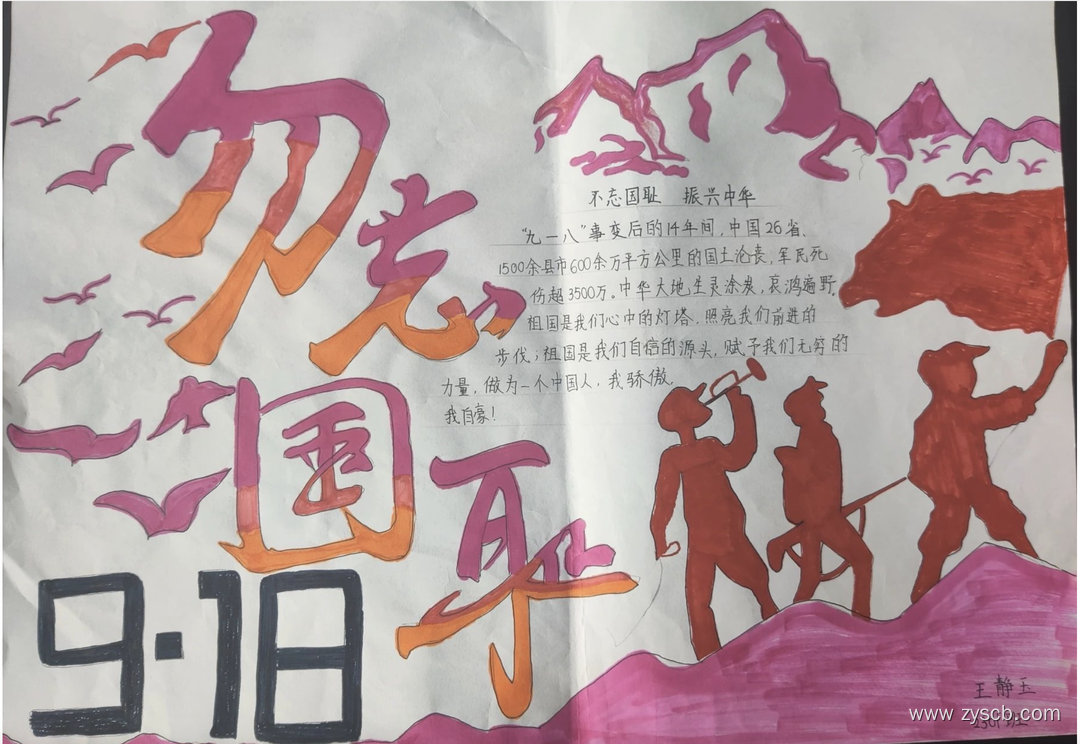 勿忘国耻
9·18
不忘国耻 振兴中华
“九一八”事变后的14年间,中国26省、
1500余县市600余万平方公里的国土沦丧,军民死
伤超3500万。中华大地生灵涂炭,哀鸿遍野。
祖国是我们心中的灯塔,照亮我们前进的
步伐;祖国是我们自信的源头,赋予我们无穷的
力量,做为一个中国人,我骄傲,
我自豪!
王静玉
www.zyscb.com